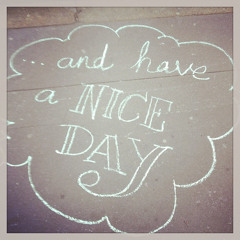 ...and have
a NICE
DAY